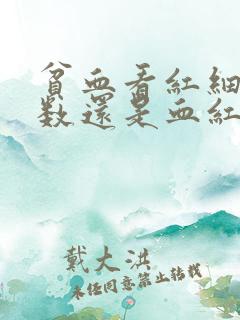 貧血看紅細
数還是血紅
戴大洪
未经同意禁止转载